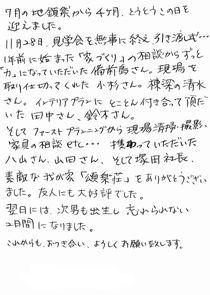 7月の地鎮祭から4ヶ月、とうとうこの日を
迎えました。
11月28日、見学会を無事に終え 引き渡しが…
1年前に始まった「家づくり」の相談からずっと
"力"になっていただいた備前島さん。現場を
取り仕切ってくれた 小杉さん。棟梁の清水
さん。インテリアプランに とことん付き合って頂いて
いた 田中さん、鈴木さん。
そして ファーストプランニングから 現場清掃・撮影・
家具の相談 etc… 携わっていただいた
八山さん、山田さん、そして塚田社長、
素敵な我が家「頌楽荘」をありがとうござい
ました。友人にも大好評でした。
翌日には、次男も出生し 忘れられない
2日間になりました。
これからも、お つき合い、よろしくお願い致します。